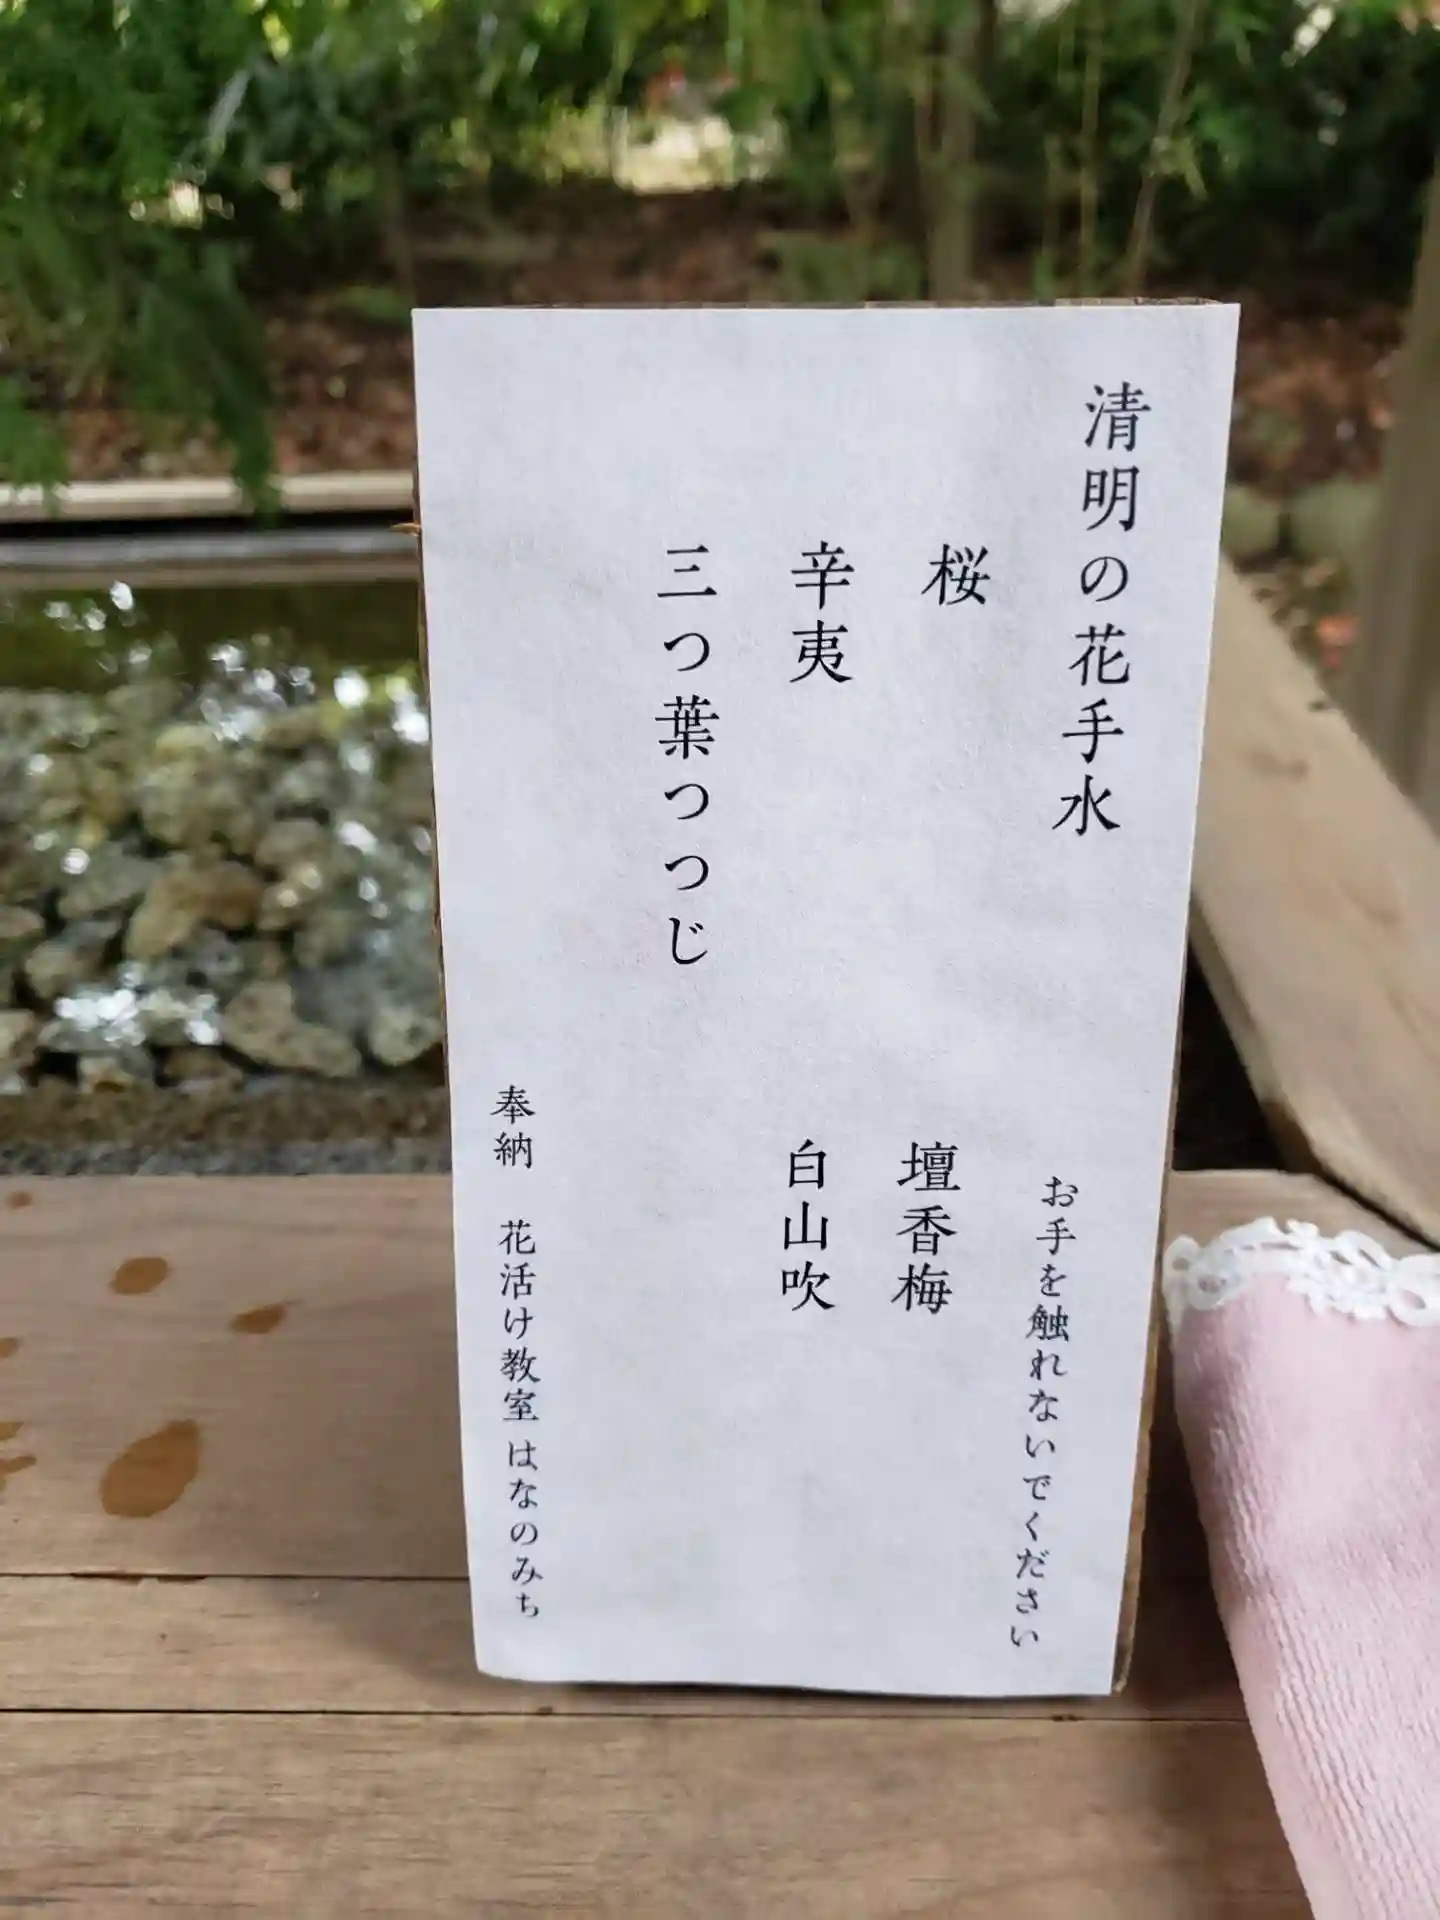 清明の花手水
お手を触れないでください
桜
壇香梅
辛夷
白山吹
三つ葉つつじ
奉納 花活け教室 はなのみち